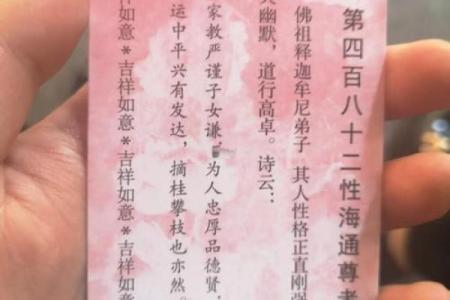 第四百八十二性海通尊者
佛祖释迦牟尼弟子 其人性格正直刚强
幽默，道行高卓。诗云：
家教严谨子女谦，为人忠厚品德贤，
运中平兴有发达，摘桂攀枝也亦然。
祥如意*吉祥如意*吉祥如意*吉祥如意